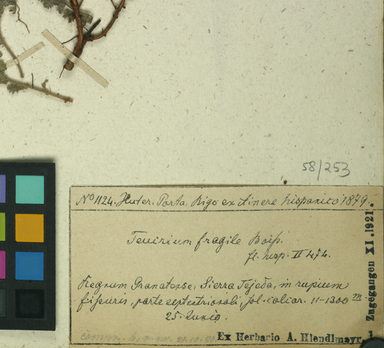 58/253
No 1124. Huter. Porta. Rigo ex itinere hispanico 1879.
Teucrium fragile Boiss.
fl. hisp. II 474.
Regnum Granatense, Sierra Tejeda, in rupium
fissuris, parte septentrionali, sol. caliar. 11-1300
25. Junio.
Ex Herbario A. Hiendlmayr.
Zugegangen XI. 1921.